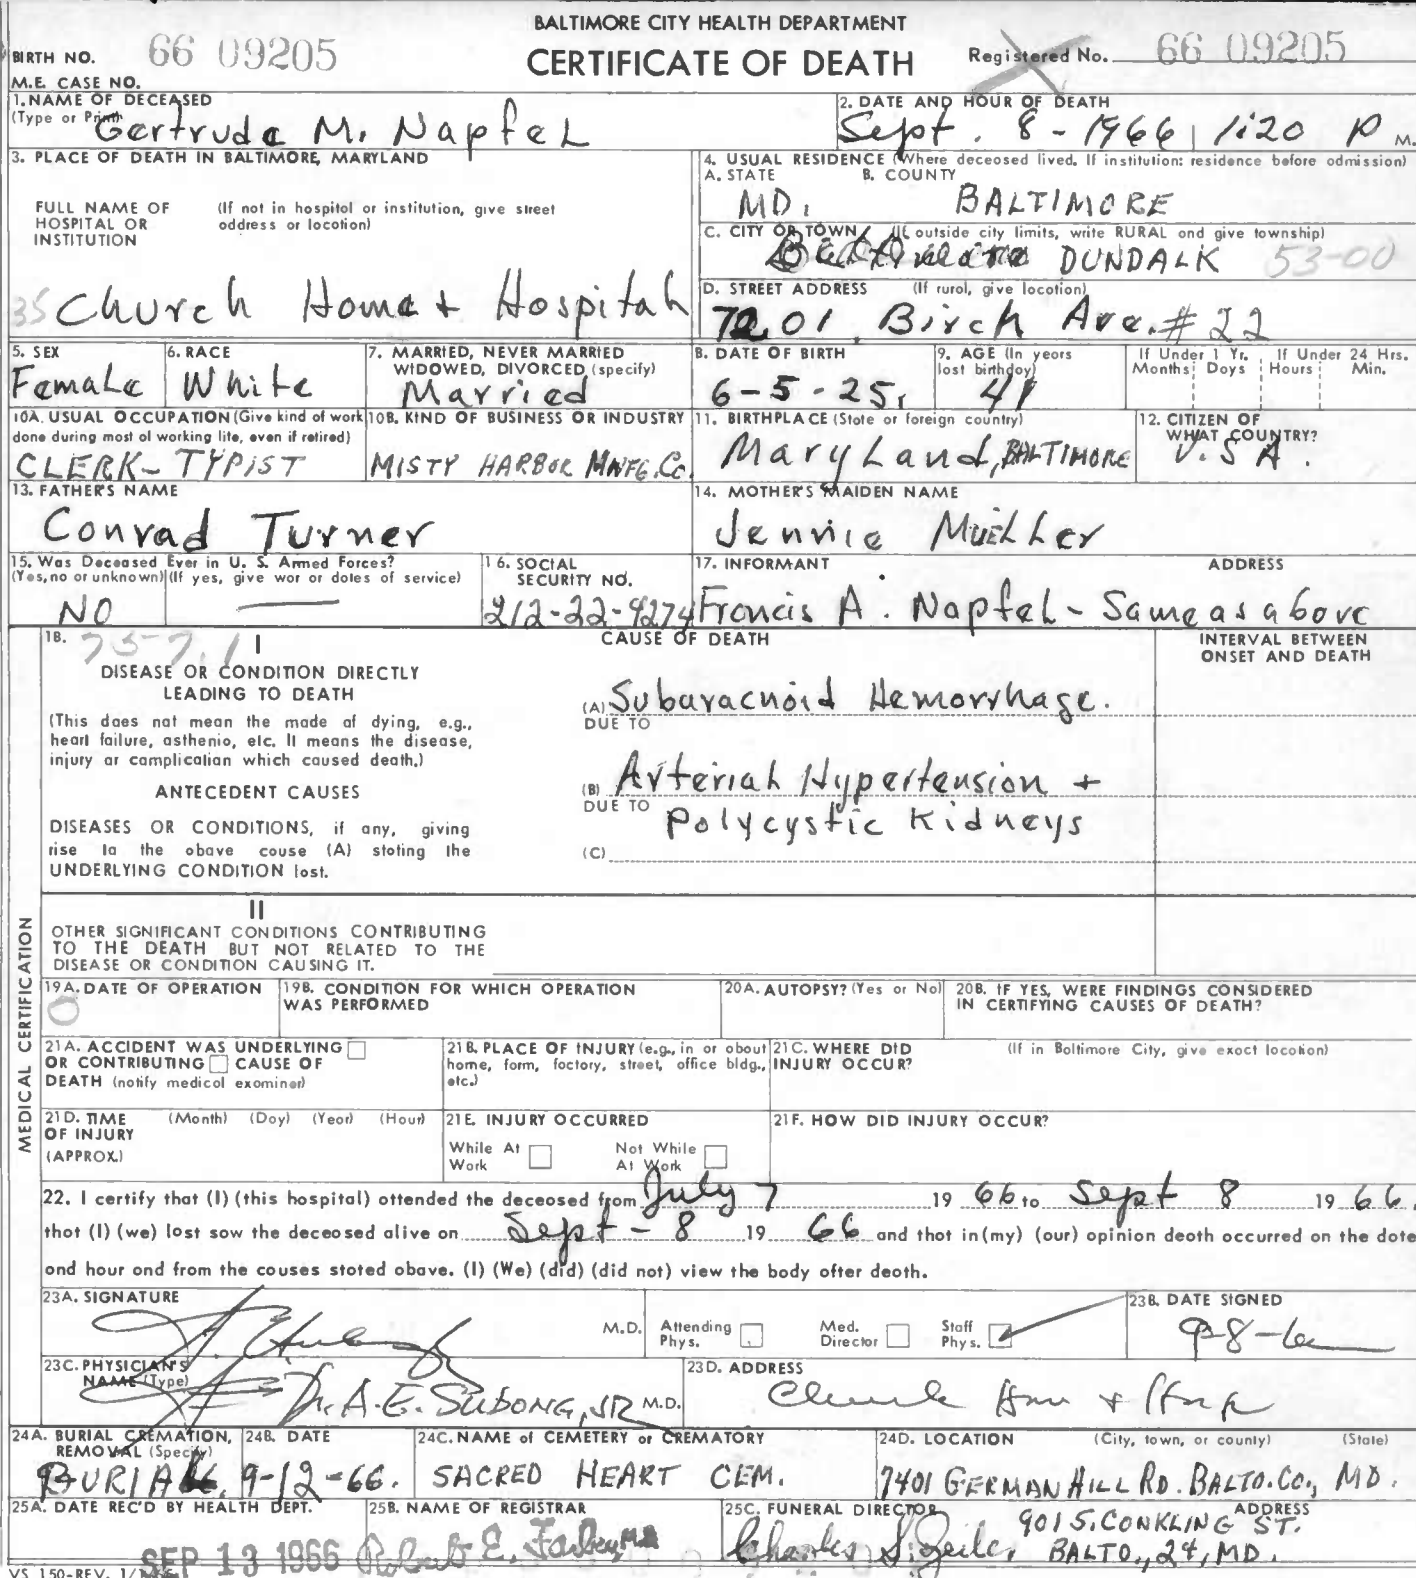 BALTIMORE CITY HEALTH DEPARTMENT
BIRTH NO. 66 09205 CERTIFICATE OF DEATH Registered No. 66 09205
M.E. CASE NO.
1. NAME OF DECEASED
(Type or Print) Gertrude M. Napfel
2. DATE AND HOUR OF DEATH
Sept. 8-1966 1:20 P M.
3. PLACE OF DEATH IN BALTIMORE, MARYLAND
FULL NAME OF HOSPITAL OR INSTITUTION (If not in hospital or institution, give street address or location)
35 Church Home + Hospital
4. USUAL RESIDENCE (Where deceased lived. If institution: residence before admission)
A. STATE B. COUNTY
MD. BALTIMORE
C. CITY OR TOWN (If outside city limits, write RURAL and give township)
Baltimore DUNDALK 53-00
D. STREET ADDRESS (If rural, give location)
7201 Birch Ave. #22
5. SEX
Female
6. RACE
White
7. MARRIED, NEVER MARRIED WIDOWED, DIVORCED (specify)
Married
8. DATE OF BIRTH
6-5-25.
9. AGE (In years last birthday)
41
If Under 1 Yr. Months Days
If Under 24 Hrs. Hours Min.
10A. USUAL OCCUPATION (Give kind of work done during most of working life, even if retired)
CLERK-TYPIST
10B. KIND OF BUSINESS OR INDUSTRY
MISTY HARBOR MNFG. Co.
11. BIRTHPLACE (State or foreign country)
Maryland, BALTIMORE
12. CITIZEN OF WHAT COUNTRY?
U.S A.
13. FATHER'S NAME
Conrad Turner
14. MOTHER'S MAIDEN NAME
Jennie Mueller
15. Was Deceased Ever in U. S. Armed Forces?
(Yes, no or unknown) (If yes, give war or dates of service)
NO
16. SOCIAL SECURITY NO.
212-22-9274
17. INFORMANT ADDRESS
Francis A. Napfel - Same as above
MEDICAL CERTIFICATION
18. 757.1 I
CAUSE OF DEATH
INTERVAL BETWEEN ONSET AND DEATH
DISEASE OR CONDITION DIRECTLY LEADING TO DEATH
(This does not mean the mode of dying, e.g., heart failure, asthenio, etc. It means the disease, injury or complication which caused death.)
(A) Subaracnoid Hemorrhage.
DUE TO
ANTECEDENT CAUSES
DISEASES OR CONDITIONS, if any, giving rise to the above cause (A) stating the UNDERLYING CONDITION last.
(B) Arterial Hypertension +
DUE TO Polycystic Kidneys
(C)
II
OTHER SIGNIFICANT CONDITIONS CONTRIBUTING TO THE DEATH BUT NOT RELATED TO THE DISEASE OR CONDITION CAUSING IT.
19A. DATE OF OPERATION
0
19B. CONDITION FOR WHICH OPERATION WAS PERFORMED
20A. AUTOPSY? (Yes or No)
20B. IF YES, WERE FINDINGS CONSIDERED IN CERTIFYING CAUSES OF DEATH?
21A. ACCIDENT WAS UNDERLYING OR CONTRIBUTING CAUSE OF DEATH (notify medical examiner)
21B. PLACE OF INJURY (e.g., in or about home, farm, factory, street, office bldg., etc.)
21C. WHERE DID INJURY OCCUR? (If in Baltimore City, give exact location)
21D. TIME OF INJURY (APPROX.) (Month) (Day) (Year) (Hour)
21E. INJURY OCCURRED
While At Work Not While At Work
21F. HOW DID INJURY OCCUR?
22. I certify that (I) (this hospital) attended the deceased from July 7 19 66 to Sept 8 19 66,
that (I) (we) last saw the deceased alive on Sept - 8 19 66 and that in (my) (our) opinion death occurred on the date
and hour and from the causes stated above. (I) (We) (did) (did not) view the body after death.
23A. SIGNATURE
M.D. Attending Phys. Med. Director Staff Phys.
23B. DATE SIGNED
9-8-66
23C. PHYSICIAN'S NAME (Type)
Dr. A. E. SUBONG, JR M.D.
23D. ADDRESS
Church Home + Hosp
24A. BURIAL CREMATION, REMOVAL (Specify)
BURIAL
24B. DATE
9-12-66.
24C. NAME of CEMETERY or CREMATORY
SACRED HEART CEM.
24D. LOCATION (City, town, or county) (State)
7401 GERMAN HILL RD. BALTO. CO., MD.
25A. DATE REC'D BY HEALTH DEPT.
SEP 13 1966
25B. NAME OF REGISTRAR
Robert E. Farber, M.D.
25C. FUNERAL DIRECTOR ADDRESS
Charles S. Zeiler 901 S. CONKLING ST.
BALTO., 24, MD.
VS 150-REV. 1/1